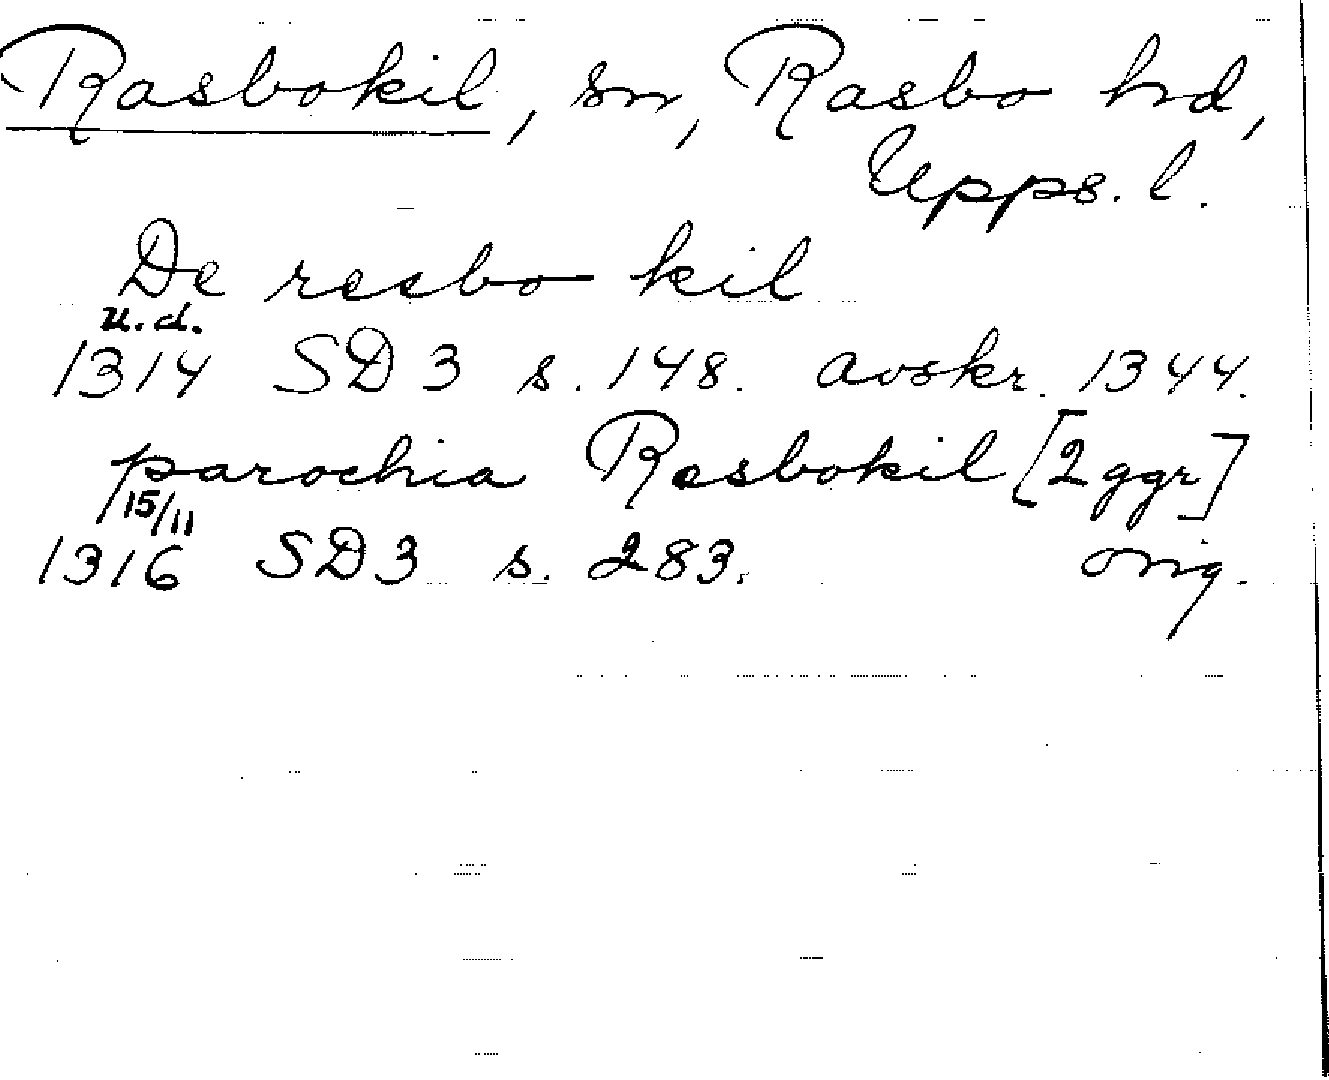 Rasbokil, sn, Rasbo hd,
Upps. l.
De resbo kil
u.d.
1314 SD 3 s. 148. avskr. 1344.
parochia Resbokil [2 ggr]
15/11
1316 SD 3 s. 283. orig.